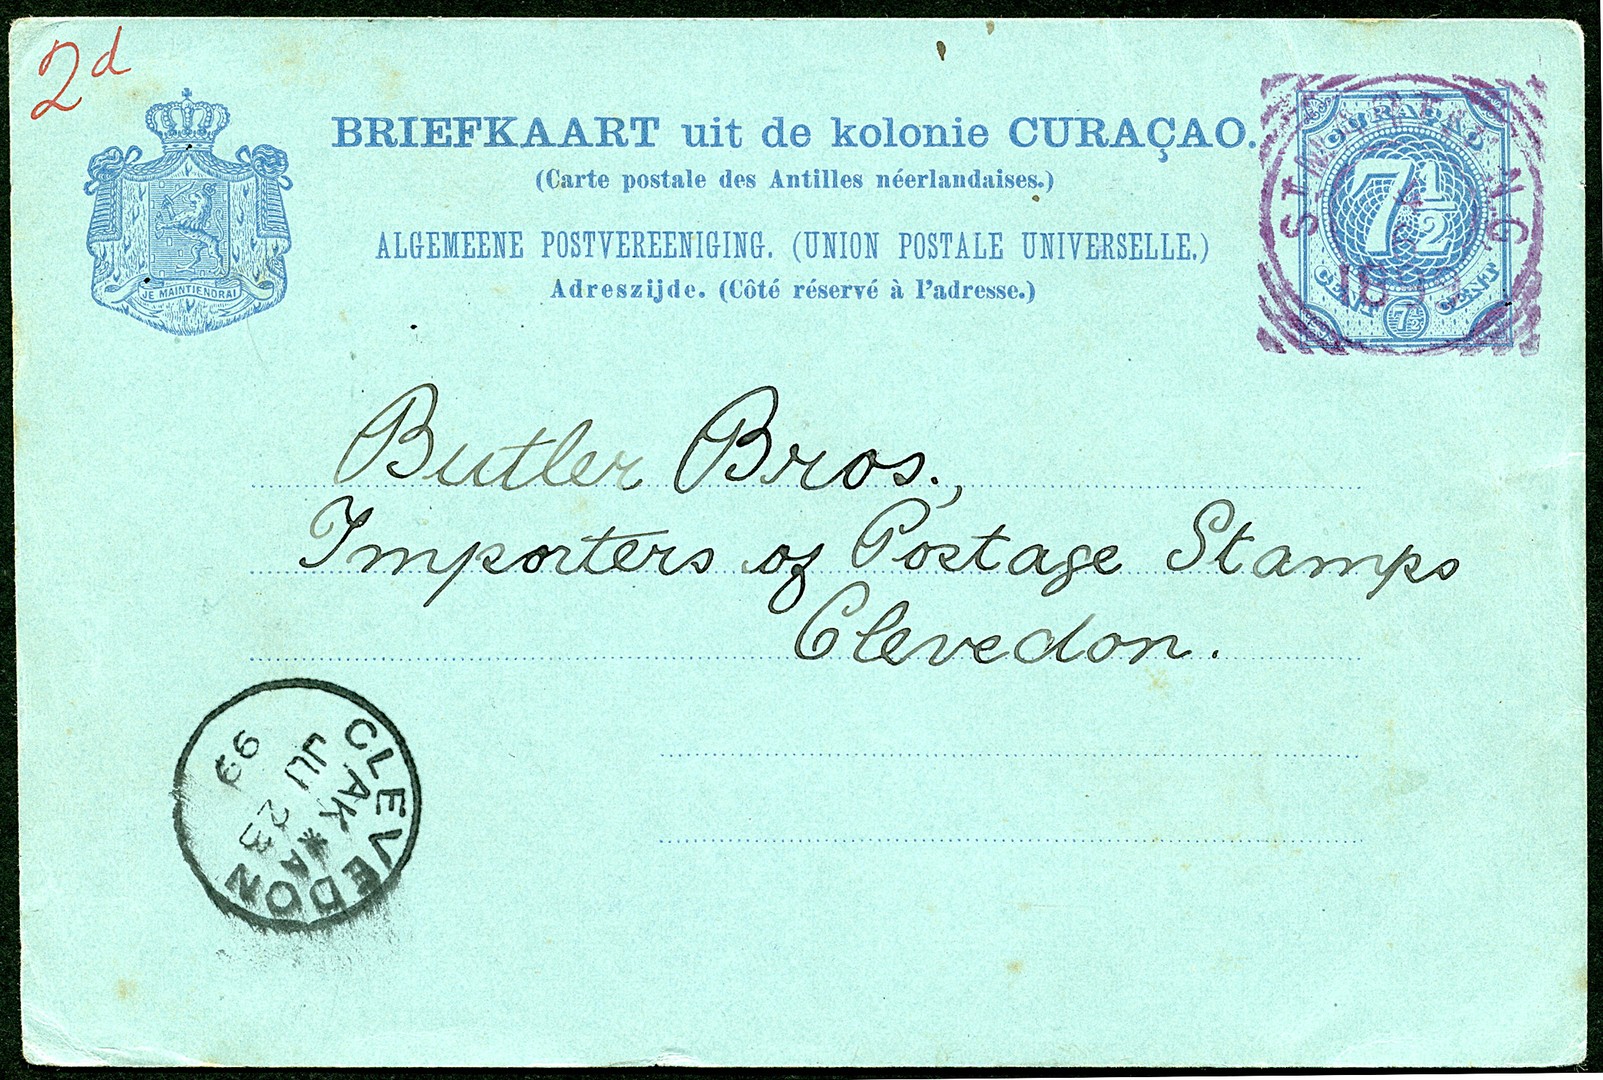 2d
BRIEFKAART uit de kolonie CURAÇAO.
(Carte postale des Antilles néerlandaises.)
ALGEMEENE POSTVEREENIGING. (UNION POSTALE UNIVERSELLE.)
Adreszijde. (Côté réservé à l'adresse.)
JE MAINTIENDRAI
CURAÇAO
7½
CENT 7½ CENT
Butler Bros.,
Importers of Postage Stamps
Clevedon.
CLEVEDON
AK
JU 23
99
A